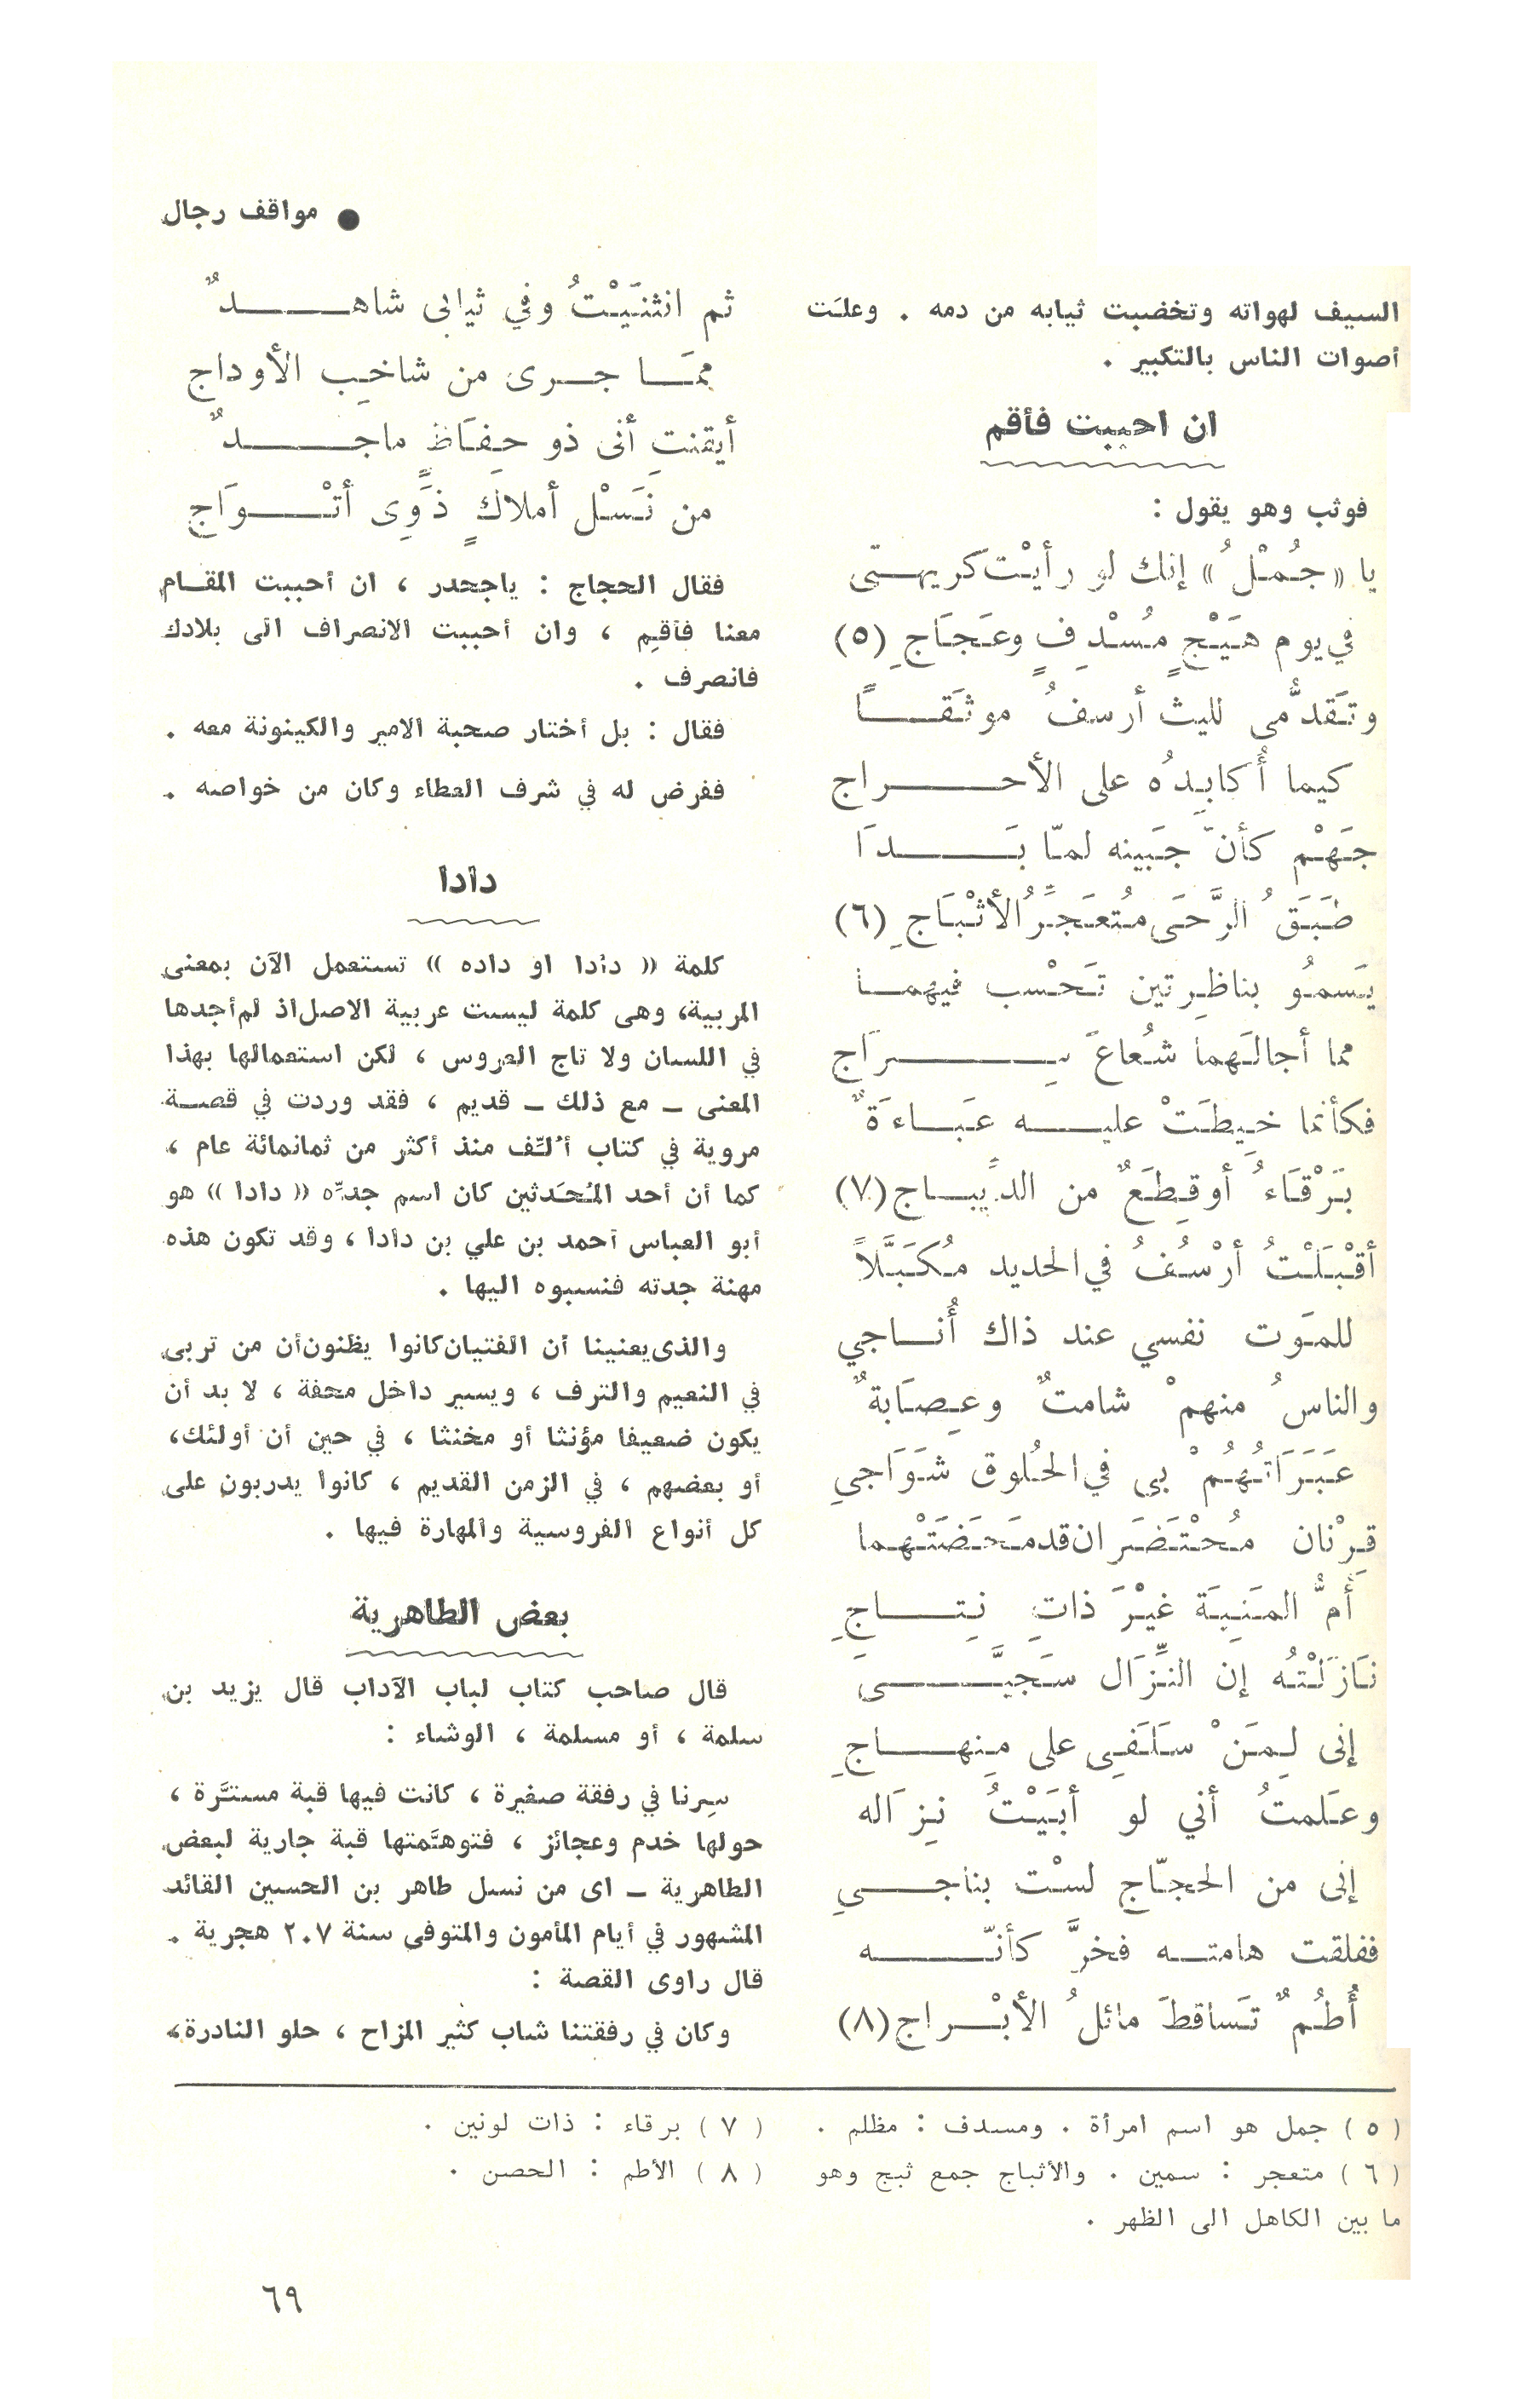 ● مواقف رجال
السيف لهواته وتخضبت ثيابه من دمه . وعلَت
أصوات الناس بالتكبير .
ان احببت فأقم
فوثب وهو يقول :
يا « جُمْلُ » إنك لو رأيْت كريهتى
في يوم هَيْجٍ مُسْدِفٍ وعَجَاجِ (٥)
وتَقدُّمى لليث أرسفُ موثَقـــاً
كيما أُكابِدُه على الأحـــراج
جَهْم كأنّ جَبينه لمّا بَـــدَا
طَبَقُ الرَّحَى مُتعَجِّرُ الأثْبَاجِ (٦)
يَسمُو بناظِرتين تَحْسب فيهمـا
مما أجالَهما شُعاعَ سِـــرَاج
فكأنما خيِطَتْ عليـــه عَبَـاءَةٌ
بَرْقَاءُ أو قِطَعٌ من الدِّيبـاج (٧)
أقْبَلْتُ أرْسُفُ في الحديد مُكَبَّلاً
للمَوت نفسي عند ذاك أُناجي
والناسُ منهمْ شامتٌ وعِصَابةٌ
عَبَرَاتُهُمْ بى في الحُلوق شَوَاجىِ
قِرْنان مُحْتَضَران قد مَحَضَتْهما
أُمُّ المَنِيَة غيْرَ ذاتِ نِتـــاجِ
نَازَلْتُه إن النِّزَال سَجِيَّـــى
إنى لِمَنْ سَلَفِى على مِنهـــاجِ
وعَلمتُ أني لو أبَيْتُ نِزَاله
إنى من الحجّاج لسْت بناجـــىِ
ففلقت هامتـــه فخرَّ كأنّـــه
أُطُمٌ تَساقطَ مائلُ الأبْـــراج (٨)
ثم انثنَيْتُ وفي ثيابى شاهـــدٌ
ممَـــا جـــرى من شاخِب الأوداج
أيقنتِ أنى ذو حِفَاظٍ ماجـــدٌ
من نَسْل أملاكٍ ذَوِى أتْـــوَاج
فقال الحجاج : ياجحدر ، ان أحببت المقـام
معنا فأقِم ، وان أحببت الانصراف الى بلادك
فانصرف .
فقال : بل أختار صحبة الامير والكينونة معه .
ففرض له في شرف العطاء وكان من خواصه .
دادا
كلمة « دادا او داده » تستعمل الآن بمعنى
المربية، وهى كلمة ليست عربية الاصل اذ لم أجدها
في اللسان ولا تاج العروس ، لكن استعمالها بهذا
المعنى ــ مع ذلك ــ قديم ، فقد وردت في قصـة
مروية في كتاب أُلِّف منذ أكثر من ثمانمائة عام ،
كما أن أحد المُحَدثين كان اسم جدِّه « دادا » هو
أبو العباس أحمد بن علي بن دادا ، وقد تكون هذه
مهنة جدته فنسبوه اليها .
والذى يعنينا أن الفتيان كانوا يظنون أن من تربى
في النعيم والترف ، ويسير داخل محفة ، لا بد أن
يكون ضعيفا مؤنثا أو مخنثا ، في حين أن أولئك،
أو بعضهم ، في الزمن القديم ، كانوا يدربون على
كل أنواع الفروسية والمهارة فيها .
بعض الطاهرية
قال صاحب كتاب لباب الآداب قال يزيد بن
سلمة ، أو مسلمة ، الوشاء :
سِرنا في رفقة صغيرة ، كانت فيها قبة مستتَّرة ،
حولها خدم وعجائز ، فتوهَّمتها قبة جارية لبعض
الطاهرية ــ اى من نسل طاهر بن الحسين القائد
المشهور في أيام المأمون والمتوفى سنة ٢٠٧ هجرية .
قال راوى القصة :
وكان في رفقتنا شاب كثير المزاح ، حلو النادرة،
( ٥ ) جمل هو اسم امرأة . ومسدف : مظلم .
( ٦ ) متعجر : سمين . والأثباج جمع ثبج وهو
ما بين الكاهل الى الظهر .
( ٧ ) برقاء : ذات لونين .
( ٨ ) الأطم : الحصن .
٦٩